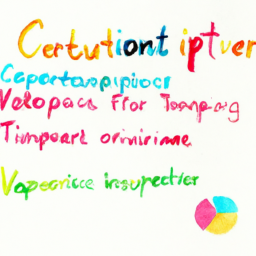 Certutiont iptver
Caportappipiocr
Velopacs For Tomparg
Timpoart orniirime
Vapecricce insyrectier